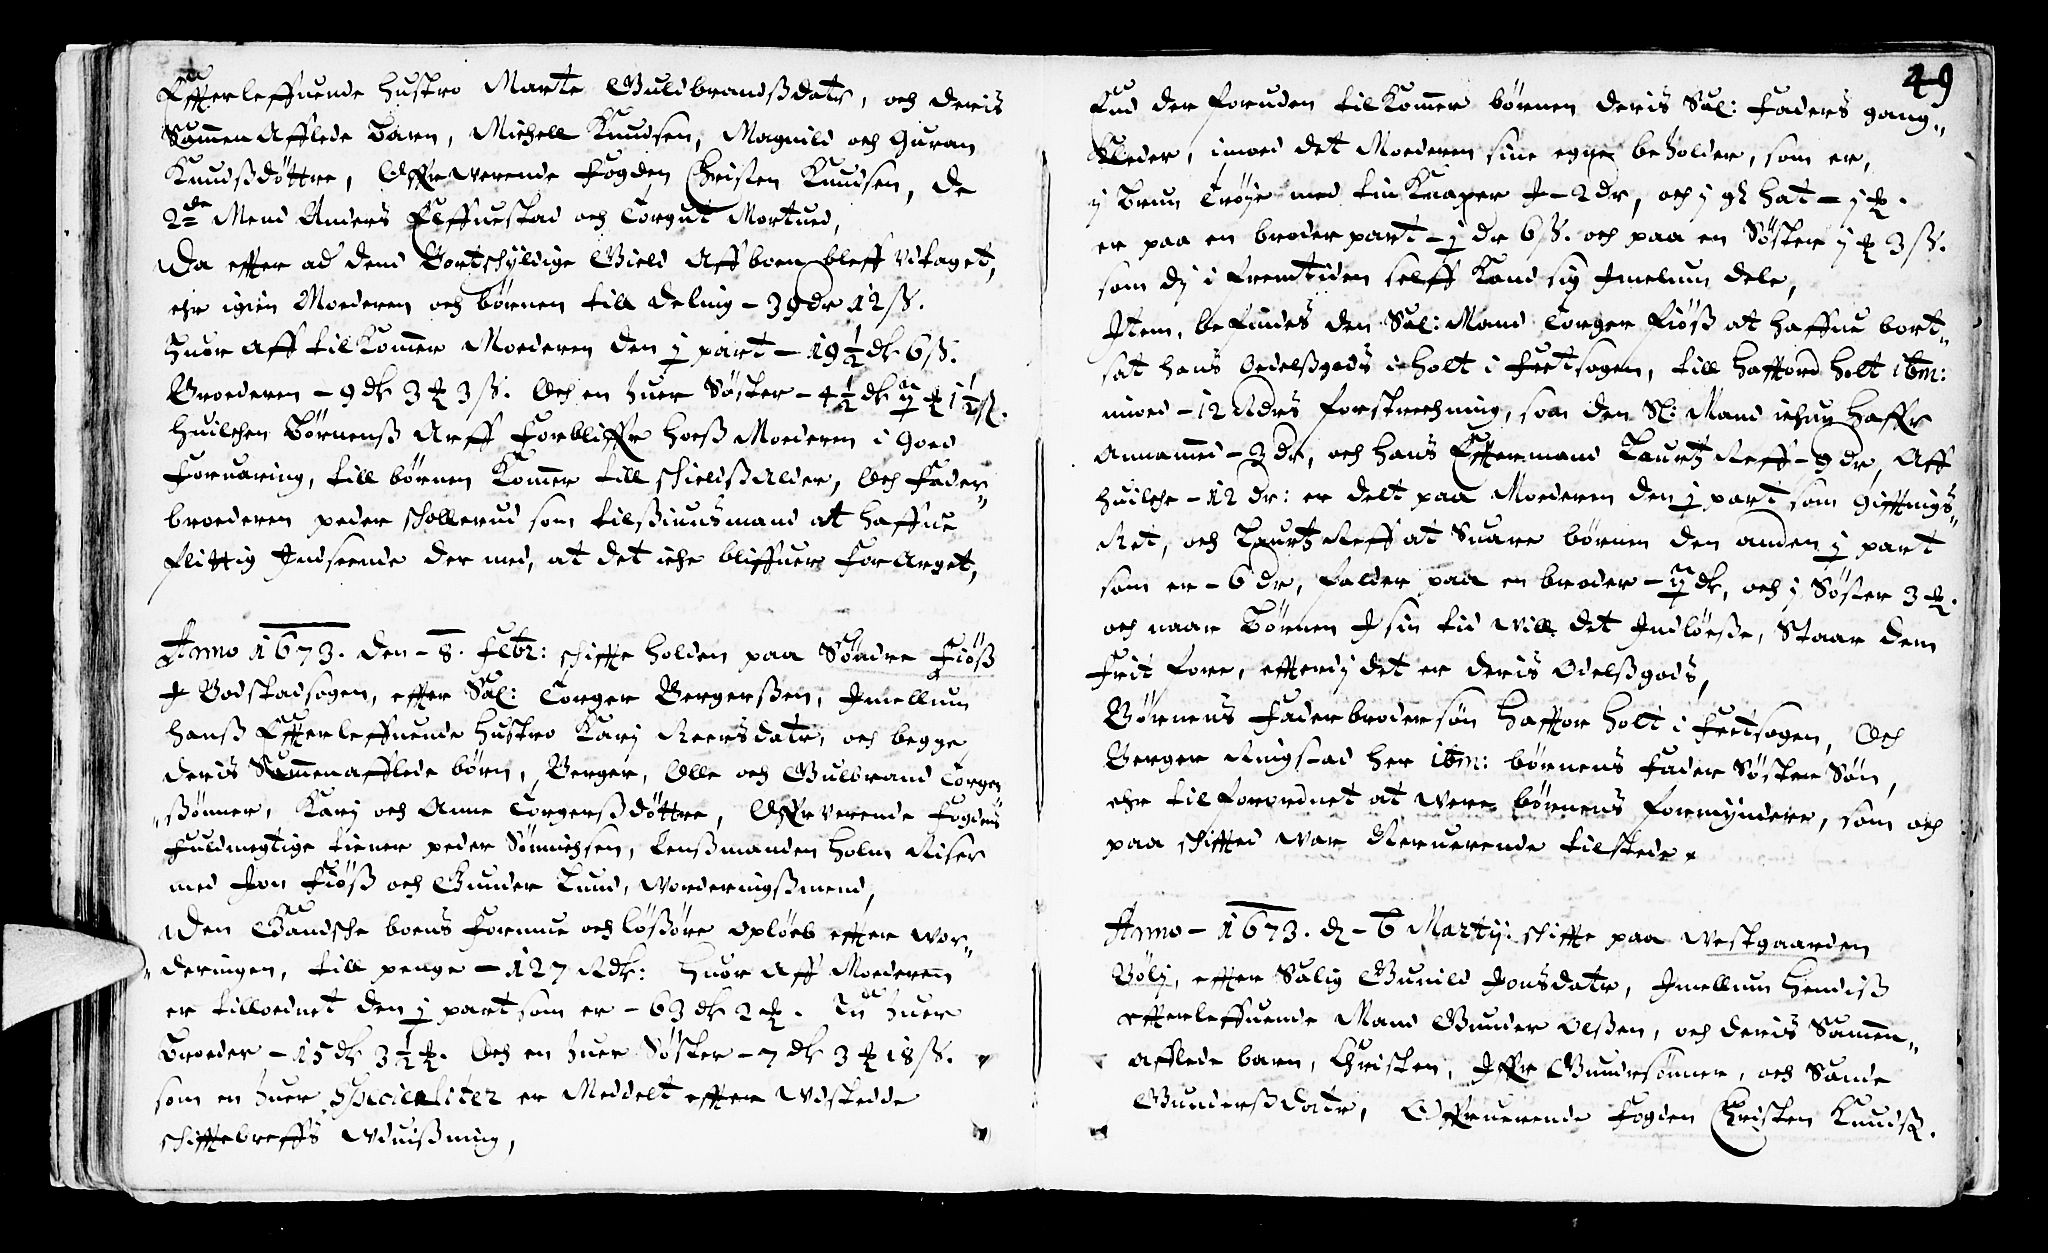 Efterleffuende hustro Marte Guldbrandsdatr, och deris
Sammen Afflede Barn, Michell Knudsen, Magnild och Guran
Knudsdøttre, Offruerende Fogden Christen Knudsen, de
2de Mend Anders Elffuestad och Torgut Mortued,
Da effter ad dend Bortschyldige Gield Aff boen bleff vdtaget,
ehr igien Moederen och børnen till deling - 39 dr 12 ß.
huor aff tilkommer Moederen den ½ part - 19½ dr 6 ß.
Broederen - 9 dr 3 ꝶ 3 ß. Och en huer Søster - 4½ dr ij ꝶ 1½ ß.
huilchen Børnenß Arff Forbliffr hoeß Moederen i goed
Foruaring, till børnen kommer till schielsßalder, Och Fader„
broederen peder schollerud som tilßiunsmand at haffue
flittig Indseende der med, at det iche bliffuer ForArget,
Anno 1673. den - 8. Febr: schiffte holden paa Søndre Fiøß
J Bodstadsogen, effter Sal: Torger Bergerßen, Jmellum
hanß Effterleffuende hustro Karj Reersdatr, och begge
deris Sammenafflede børn, Berger, Olle och Gulbrand Torger
„ßønner, Karj och Anne Torgerßdøttre, Offruerende Fogdens
fuldmegtige tiener peder Sønnichsen, lensmanden Holm Riser
med Jon Fiøß och Gunder Lund, Worderingßmend,
Den Gandsche boens Formue och løßøre opløeb effter Wor„
„deringen, till penge - 127 Rdr: huor Aff Moederen
er tilloednet den ½ part som er - 63 dr 2 ꝶ. En huer
Broder - 15 dr 3½ ꝶ. Och en huer Søster - 7 dr 3 ꝶ 18 ß.
som en huer Specialiter er Meddelt effter Vdstedde
schifftebreffs Vduißning,
49
End der foruden tilkommer børnen deris Sal: Faders gang„
Kleder, imoed det Moederen sine egne beholder, som er,
j Brun Trøje med tin Knaper J - 2 dr, och j gl hat - j ꝶ.
er paa en broder part - j dr 6 ß. och paa en Søster j ꝶ 3 ß.
som dj i fremtiden selff Kand sig Jmelum dele,
Item, befindes den Sal: Mand Torger Fiøß at haffue bort„
sat hans Oedelßgods i holt i Fedtsogen, till haffuord holt ibm:
imoed - 12 Rdrs forstrechning, som den Sl: Mand ichun haffr
annammed - 3 dr, och hans Efftermand Laurtz Reff - 9 dr, Aff
huilche - 12 dr: er delt paa Moederen den ½ part som gifftings„
Ret, och Laurtz Reff at Suare børnen den anden ½ part
som er - 6 dr, falder paa en broder - ij dr, och j Søster 3 ꝶ.
och naar Børnen J sin tid will det Jndløeße, Staar dem
Frit fore, effterdj det er deris Odelßgods,
Børnens Faderbroder søn haffuor holt i Fedtsogen, Och
Berger Ringstad her ibm: børnens Fader Søster Søn,
ehr tilforordnet at were børnens formyndere, som och
paa schifftet war Neruerende tilstede.
Anno - 1673. d - 6 Martij. schiffte paa Westgaarden
Bølj, effter Salig Gunild Jonsdatr, Jmellum hendiß
effterleffuende Mand Gunder Olßen, och deris Sammen„
afflede barn, Christen, Jffr Gundersønner, och Sande
Gunderßdatr, Offruuerende Fogden Christen Knudß.